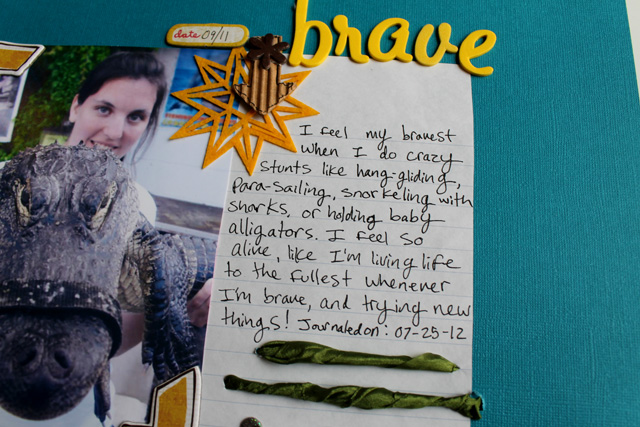 date 09/11
brave
I feel my bravest
when I do crazy
stunts like hang-gliding,
para-sailing, snorkeling with
sharks, or holding baby
alligators. I feel so
alive, like I'm living life
to the fullest whenever
I'm brave, and trying new
things! Journaled on: 07-25-12